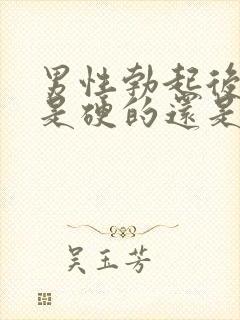 男性勃起後
是硬的還是
吴玉芳